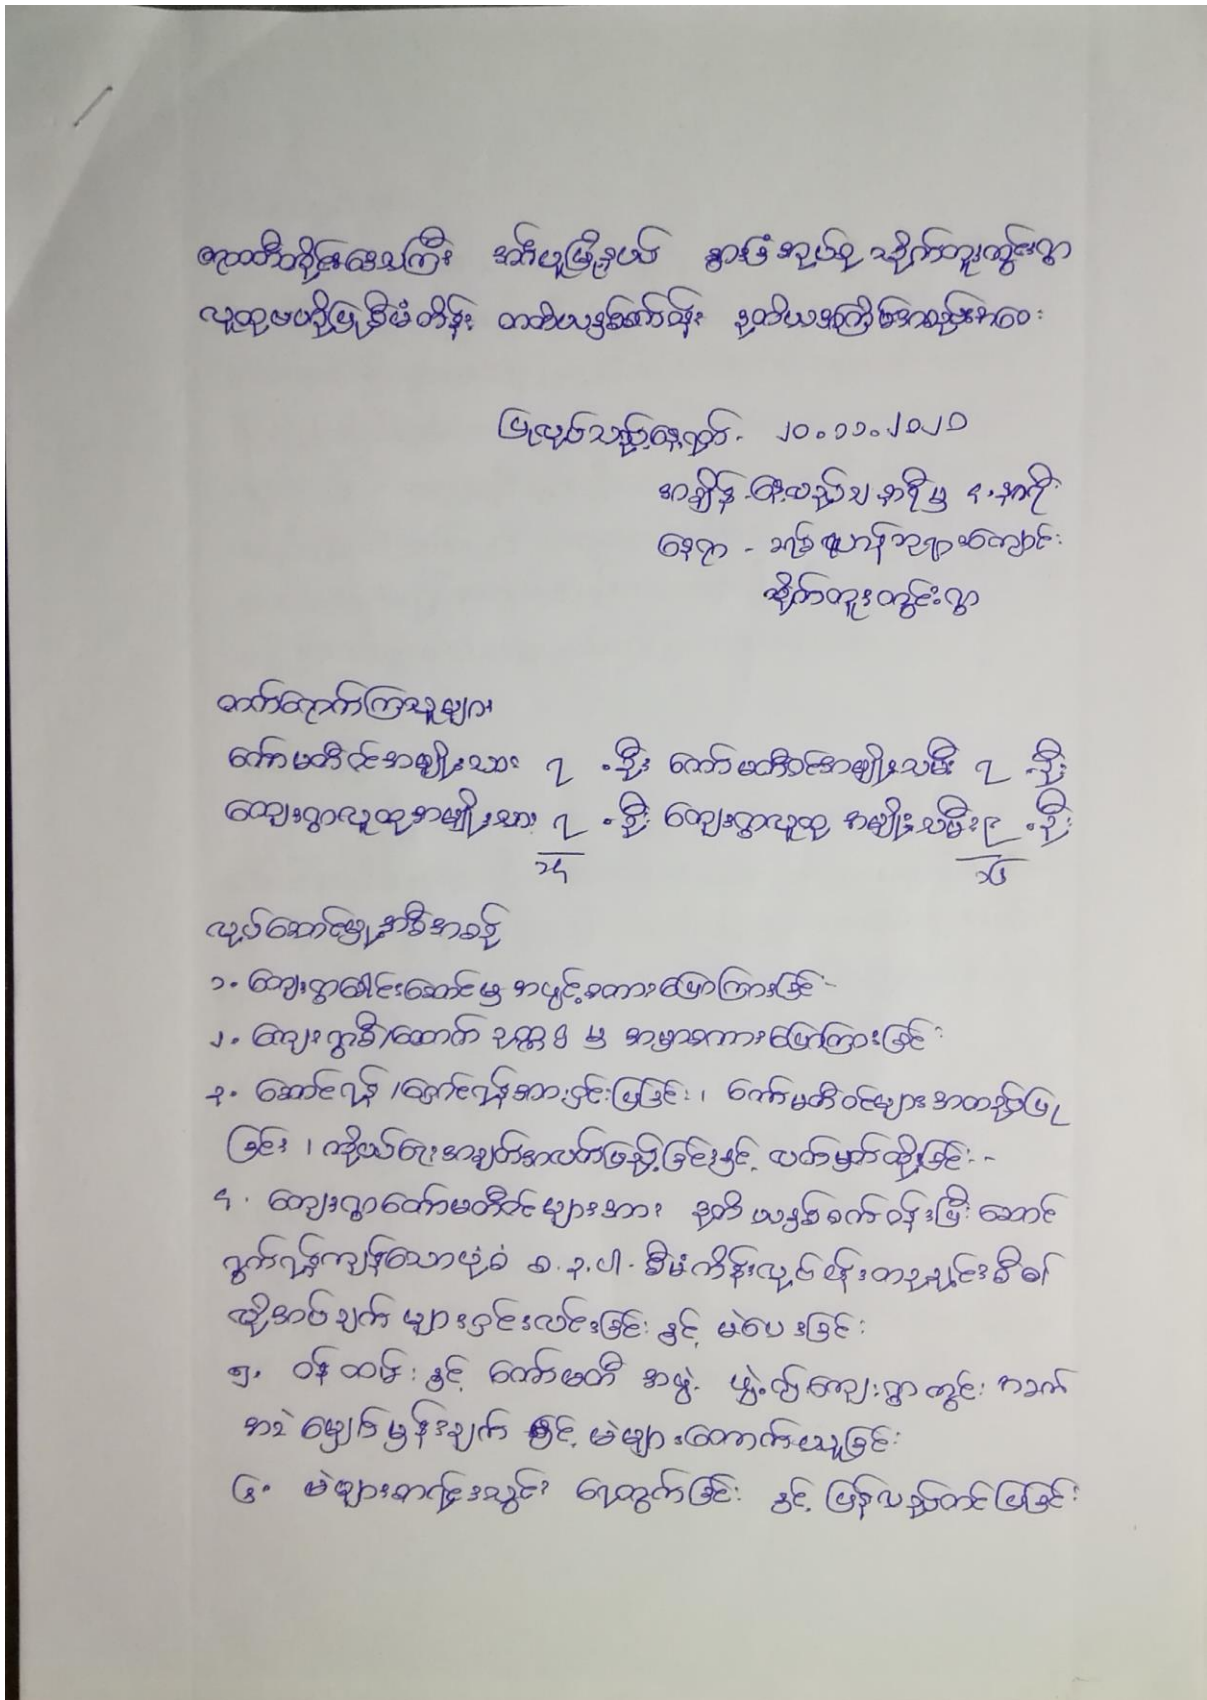 ဧရာဝတီတိုင်းဒေသကြီး အင်္ဂပူမြို့နယ် နွားခြံအုပ်စု သိုက်တူးကွင်းရွာ
လူထုဗဟိုပြုစီမံကိန်း တတိယနှစ်စက်ဝန်း ဒုတိယအကြိမ်အစည်းအဝေး
ပြုလုပ်သည့်နေ့ရက်- ၂၀.၁၁.၂၀၂၁
အချိန်-နေ့လည် ၁ နာရီမှ ၄.နာရီ
နေရာ - ဘုန်းကြီးကျောင်း
သိုက်တူးကွင်းရွာ
တက်ရောက်ကြသူများ
ကော်မတီဝင်အမျိုးသား ၇ .ဦး ကော်မတီဝင်အမျိုးသမီး ၇ .ဦး
ကျေးရွာလူထုအမျိုးသား ၇ .ဦး ကျေးရွာလူထု အမျိုးသမီး ၉ .ဦး
၁၄ ၁၆
လုပ်ဆောင်မှုအစီအစဉ်
၁. ကျေးရွာခေါင်းဆောင်မှ အဖွင့်စကားပြောကြားခြင်း-
၂. ကျေးရွာစီ/ထောက် ဥက္ကဋ္ဌ မှ အမှာစကားပြောကြားခြင်း
၃. ဆောင်ရန် /ရှောင်ရန်အားရှင်းပြခြင်း၊ ကော်မတီဝင်များအတည်ပြု
ခြင်း ၊ ကိုယ်ရေးအချက်အလက်ဖြည့်ခြင်းနှင့် လက်မှတ်ထိုးခြင်း-
၄. ကျေးရွာကော်မတီဝင်များအား ဒုတိယနှစ်စက်ဝန်းပြီး ဆောင်
ရွက်ရန်ကျန်သောပုံစံ စ.ဒ.ပါ.စီမံကိန်းလုပ်ငန်းတခုချင်းစီ၏
လိုအပ်ချက် များရှင်းလင်းခြင်း နှင့် မဲပေးခြင်း
၅. ဝန်ထမ်း နှင့် ကော်မတီ အဖွဲ့ ဖွဲ့၍ကျေးရွာတွင်း အခက်
အခဲ မျှော်မှန်းချက် နှင့် မဲများကောက်ယူခြင်း
၆. မဲများစာရင်းသွင်း ရေတွက်ခြင်း နှင့် ပြန်လည်တင်ပြခြင်း